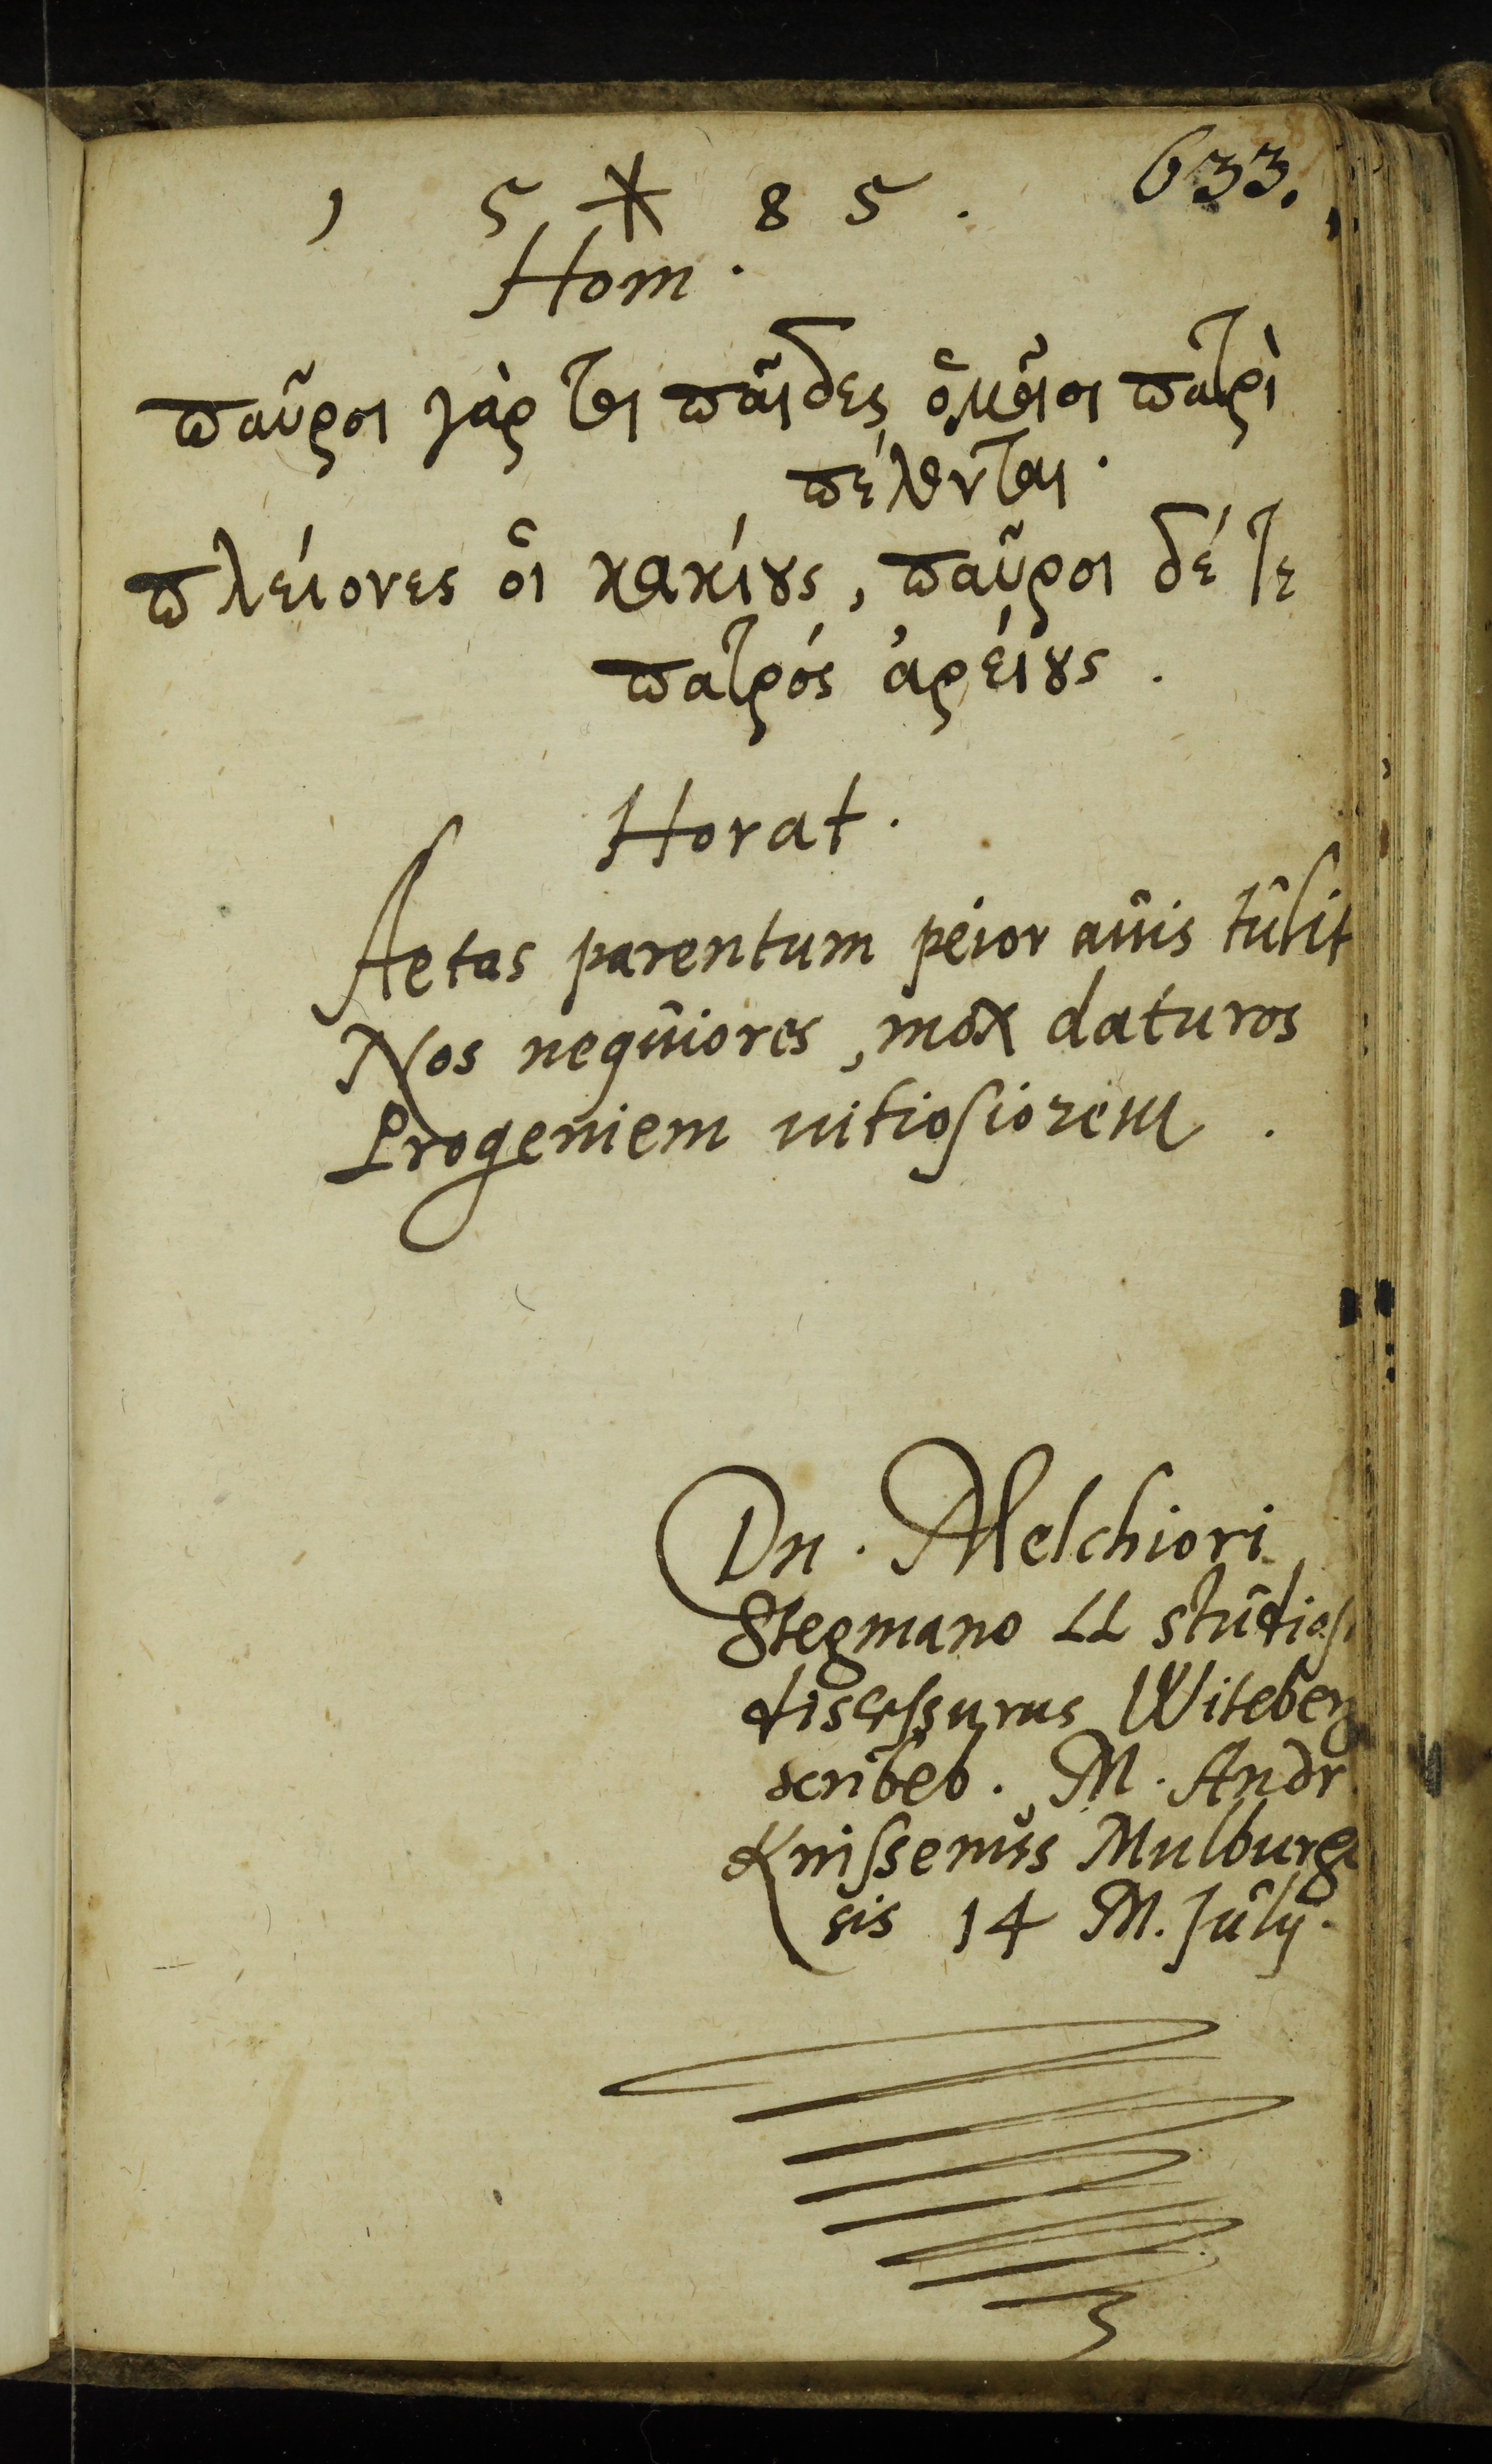 633.
1 5 * 8 5 .
Hom .
παῦροι γὰρ τοι παῖδες ὁμοῖοι πατρὶ
πέλονται .
πλείονες οἱ κακίους , παῦροι δέ τε
πατρός ἀρείους .
Horat .
Aetas parentum peior auis tulit
Nos nequiores , mox daturos
Progeniem uitiosiorem .
Dn . Melchiori
Stegmano LL studios
discessurus Witeberg
scribeb . M . Andr
Knissenius Mulburge
sis 14 M. Julij .